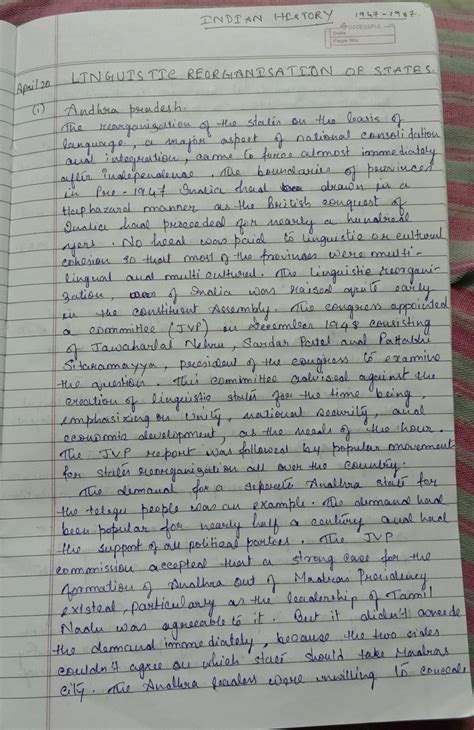 INDIAN HISTORY 1947-1967.
SUCCESSFUL
Date
Page No.
April 20 LINGUISTIC REORGANISATION OF STATES.
(i) Andhra pradesh.
The reorganization of the states on the basis of
language, a major aspect of national consolidation
and integration, came to force almost immediately
after independence. The boundaries of provinces
in Pre-1947 India had drawn in a
Haphazard manner as the British conquest of
India had proceeded for nearly a hundred
years. No heed was paid to linguistic or cultural
cohesion so that most of the provinces were multi-
lingual and multi cultured. The linguistic reorgani-
zation, of India was raised quite early
in the constituent Assembly. The congress appointed
a committee (JVP) in december 1948 consisting
of Jawaharlal Nehru, Sardar Patel and Pattabhi
Sitaramayya, president of the congress to examine
the question. This committee advised against the
creation of linguistic states for the time being,
emphasizing on unity, national security, and
economic development, as the needs of the hour.
The JVP report was followed by popular movement
for states reorganization all over the country.
The demand for a seperate Andhra state for
the telegu people was an example. The demand had
been popular for nearly half a century and had
the support of all political parties. The JVP
commission accepted that a strong case for the
formation of Andhra out of Madras Presidency
existed, particularly as the leadership of Tamil
Nadu was agreeable to it. But it didn't accede
the demand immediately, because the two sides
couldn't agree on which state should take Madras
city. The Andhra leaders were unwilling to concede